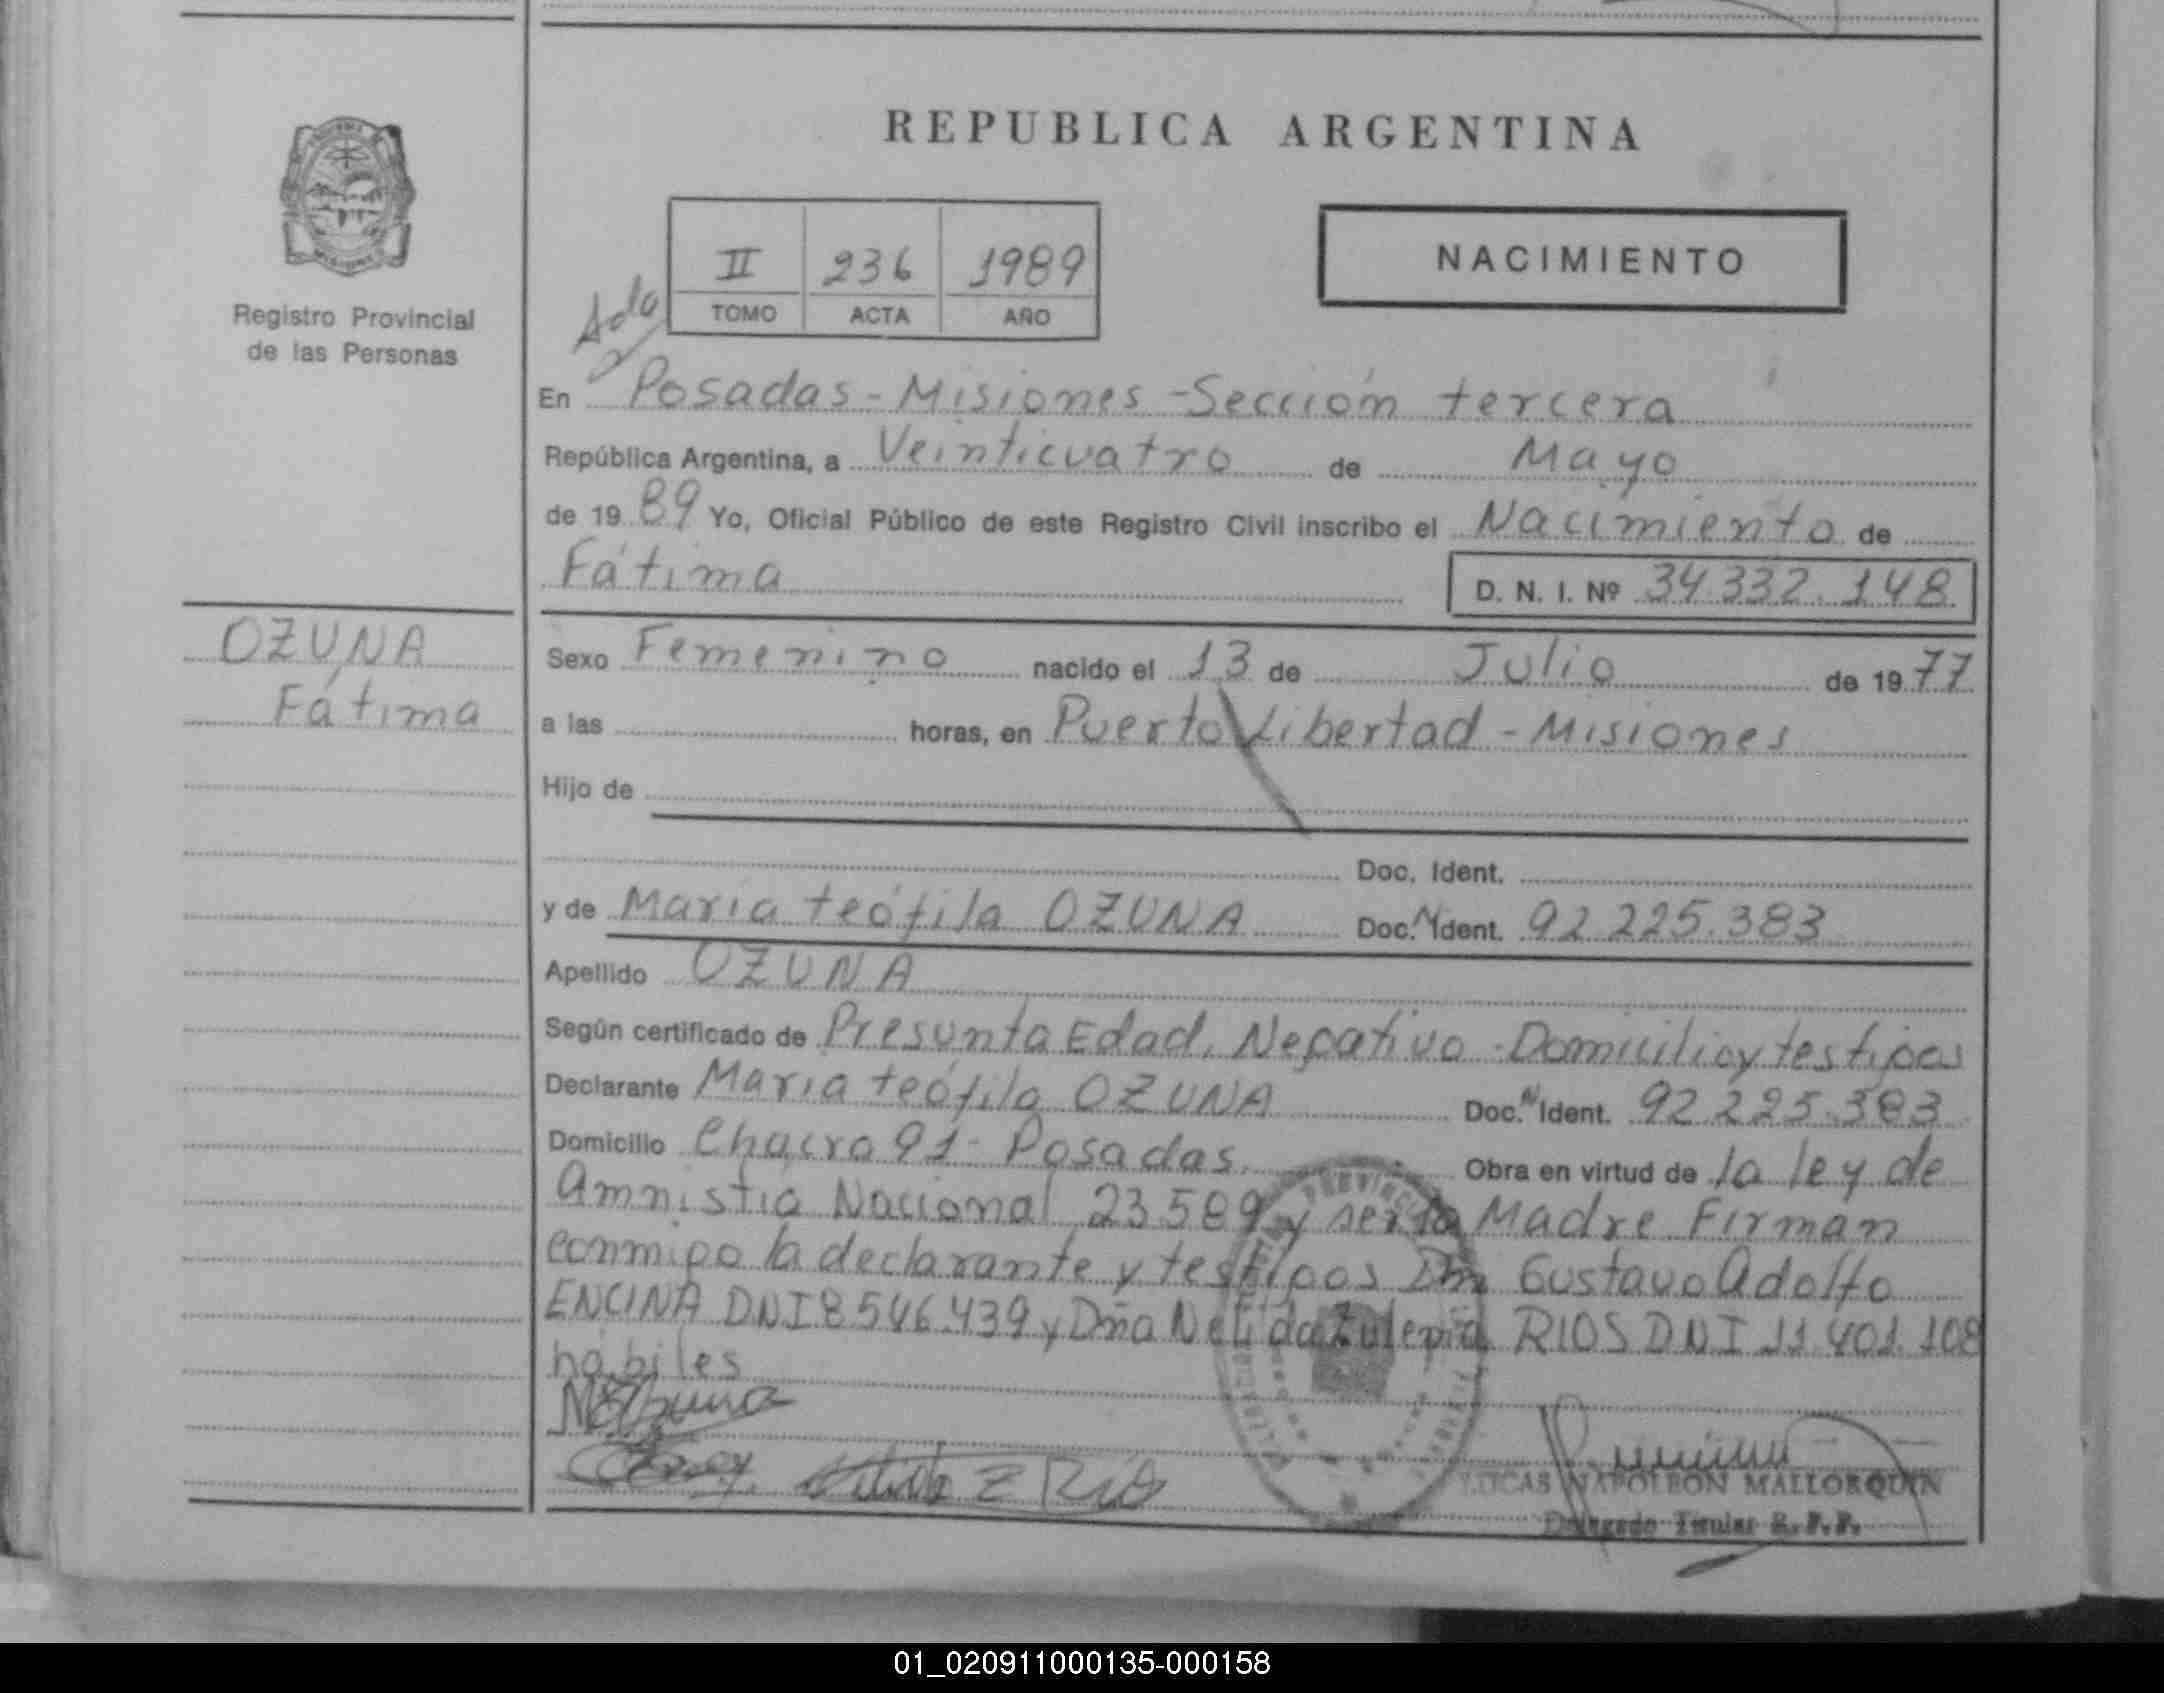 REPUBLICA ARGENTINA
NACIMIENTO
II 236 1989
TOMO ACTA AÑO
Registro Provincial
de las Personas
En Posadas - Misiones - Sección tercera
República Argentina, a Veinticuatro de Mayo
de 19 89 Yo, Oficial Público de este Registro Civil inscribo el Nacimiento de
Fátima D. N. I. Nº 34.332.148
OZUNA
Fátima
Sexo Femenino nacido el 13 de Julio de 19 77
a las horas, en Puerto Libertad - Misiones
Hijo de
Doc. Ident.
y de María teófila OZUNA Doc. Ident. 92.225.383
Apellido OZUNA
Según certificado de Presunta Edad, Negativo - Domicilio y testigos
Declarante María teófila OZUNA Doc. Ident. 92.225.383
Domicilio Chacra 91 - Posadas. Obra en virtud de la ley de
Amnistía Nacional 23.589 y ser la Madre Firman
conmigo la declarante y testigos Dn Gustavo Adolfo
ENCINA DNI 8.546.439 y Dña Nelida RIOS DNI 11.401.108
hábiles
LUCAS NAPOLEON MALLORQUIN
Delegado Titular R. P. P.
01_020911000135-000158